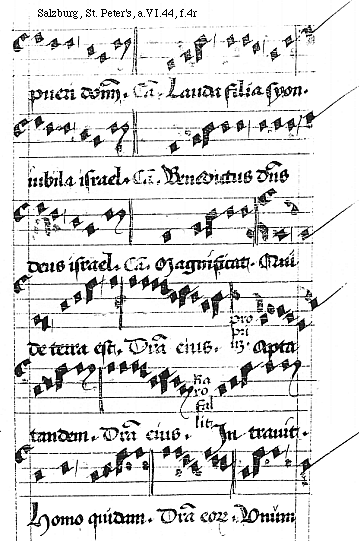 Salzburg, St. Peter's, a.VI.44, f.4r
pueri domī. Cā. Lauda filia syon.
iubila israel. Cā. Benedictus dn̄s
deus israel. Cā. Magnificat. Qui
de terra est. Orā eius. pro pri 13. Apta
tandem. Orā eius. In travit.
Homo quidam. Orā eoꝝ. Unum